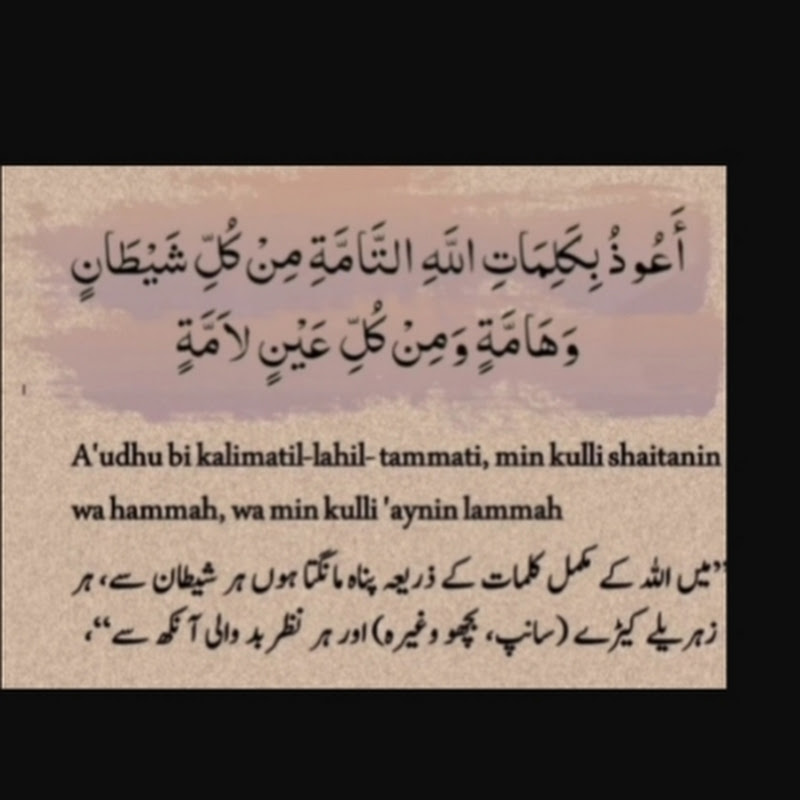 أَعُوذُ بِكَلِمَاتِ اللَّهِ التَّامَّةِ مِنْ كُلِّ شَيْطَانٍ
وَهَامَّةٍ وَمِنْ كُلِّ عَيْنٍ لاَمَّةٍ
A'udhu bi kalimatil-lahil- tammati, min kulli shaitanin
wa hammah, wa min kulli 'aynin lammah
”میں اللہ کے مکمل کلمات کے ذریعہ پناہ مانگتا ہوں ہر شیطان سے، ہر
زہریلے کیڑے (سانپ، بچھو وغیرہ) اور ہر نظر بد والی آنکھ سے“،